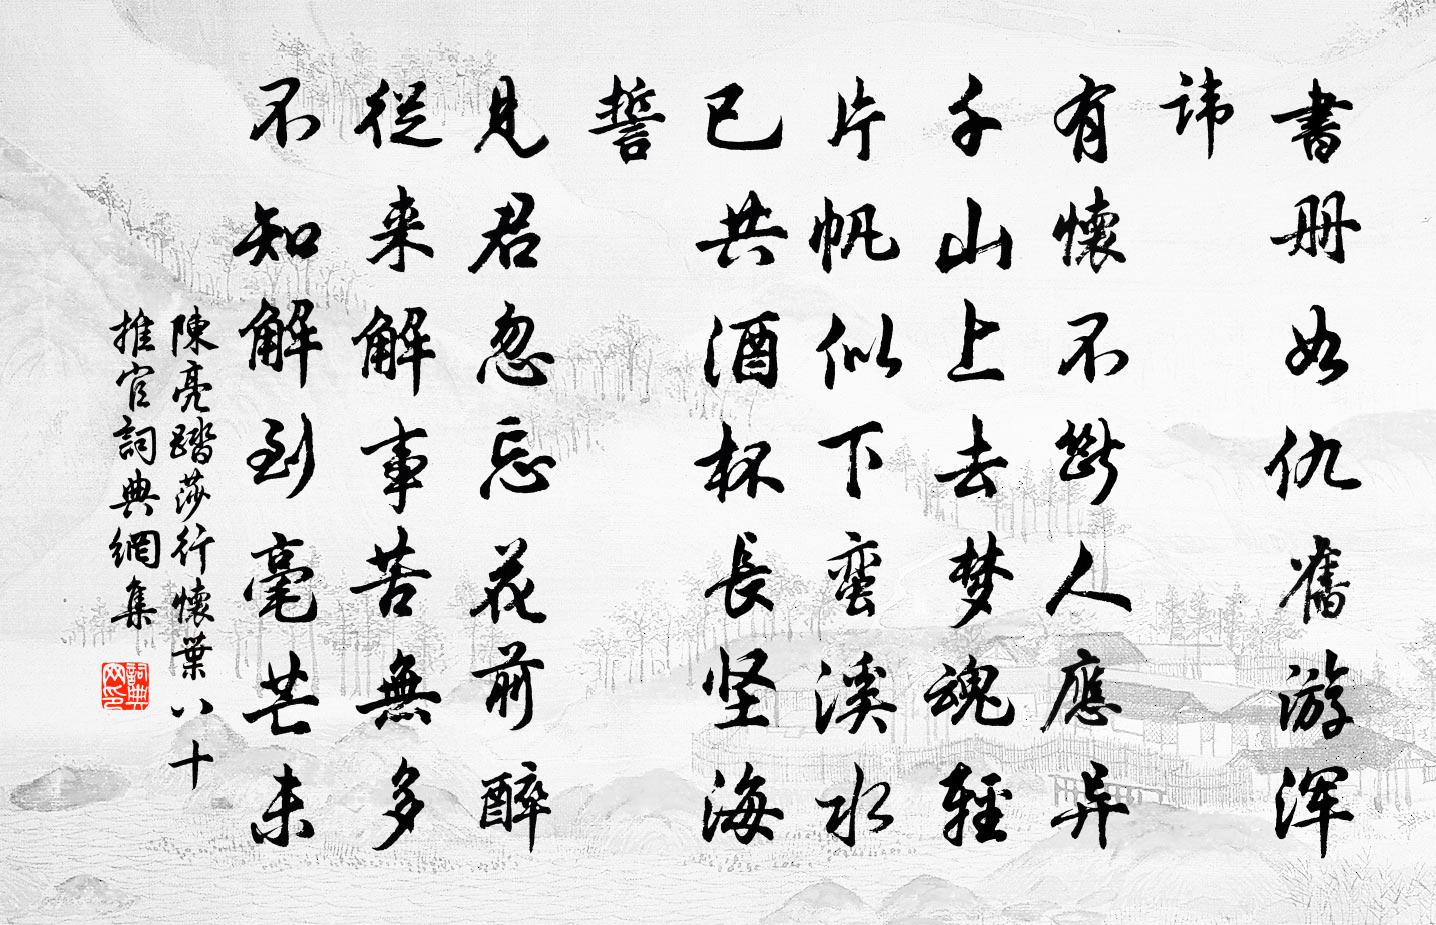 書册如仇舊游浑
讳
有懷不斷人應异
千山上去梦魂輕
片帆似下蛮溪水
已共酒杯長坚海
誓
見君忽忘花前醉
從来解事苦無多
不知解到毫芒未
陳亮踏莎行懷葉八十
推官詞典網集